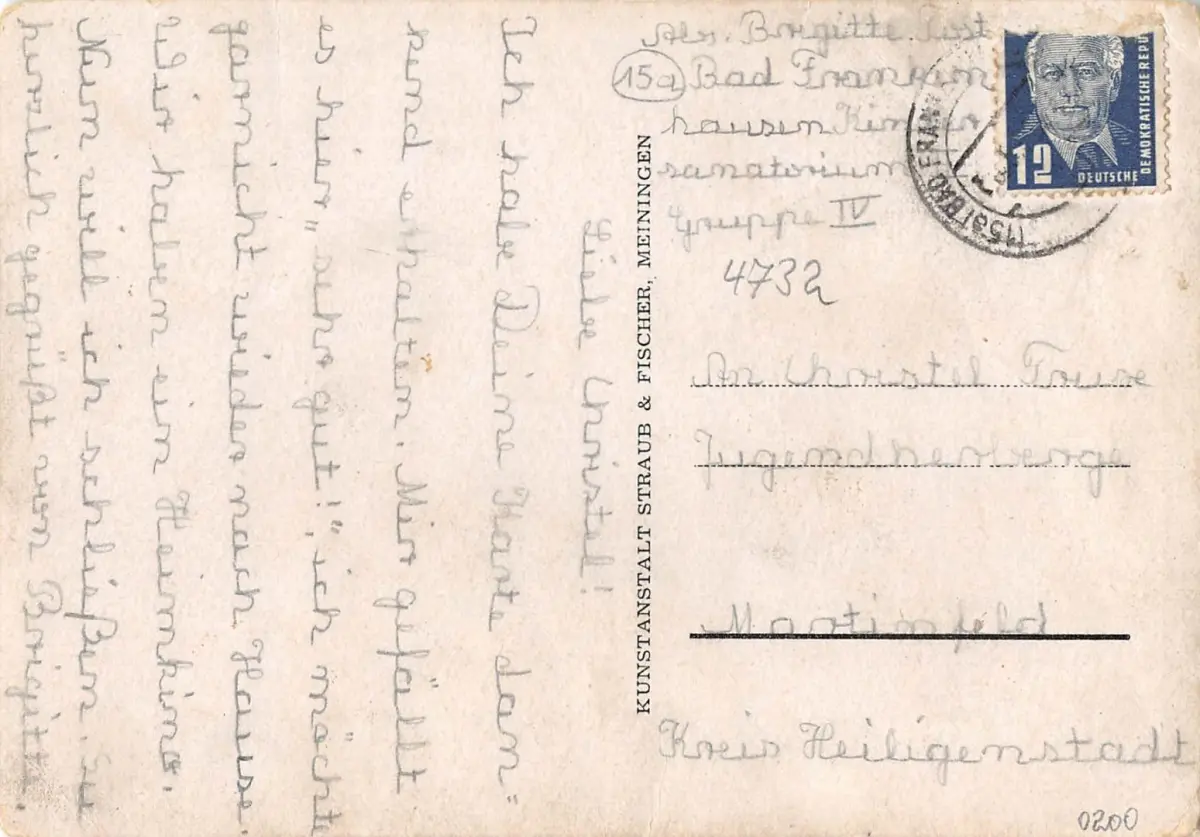 Abs. Brigitte
15a Bad Franken
hausen Kinder
sanatorium
Gruppe IV
4732
12
DEUTSCHE
DEMOKRATISCHE REPU
(15a) BAD FRAN
KUNSTANSTALT STRAUB & FISCHER, MEININGEN
An Christel
Jugendherberge
Martinfeld
Kreis Heiligenstadt
0200
Liebe Christel!
Ich habe Deine Karte dan=
kend erhalten. Mir gefällt
es hier „sehr gut!", ich möchte
garnicht wieder nach Hause.
Wir haben ein Heimkino.
Nun will ich schließen. Sei
herzlich gegrüßt von Brigitte.